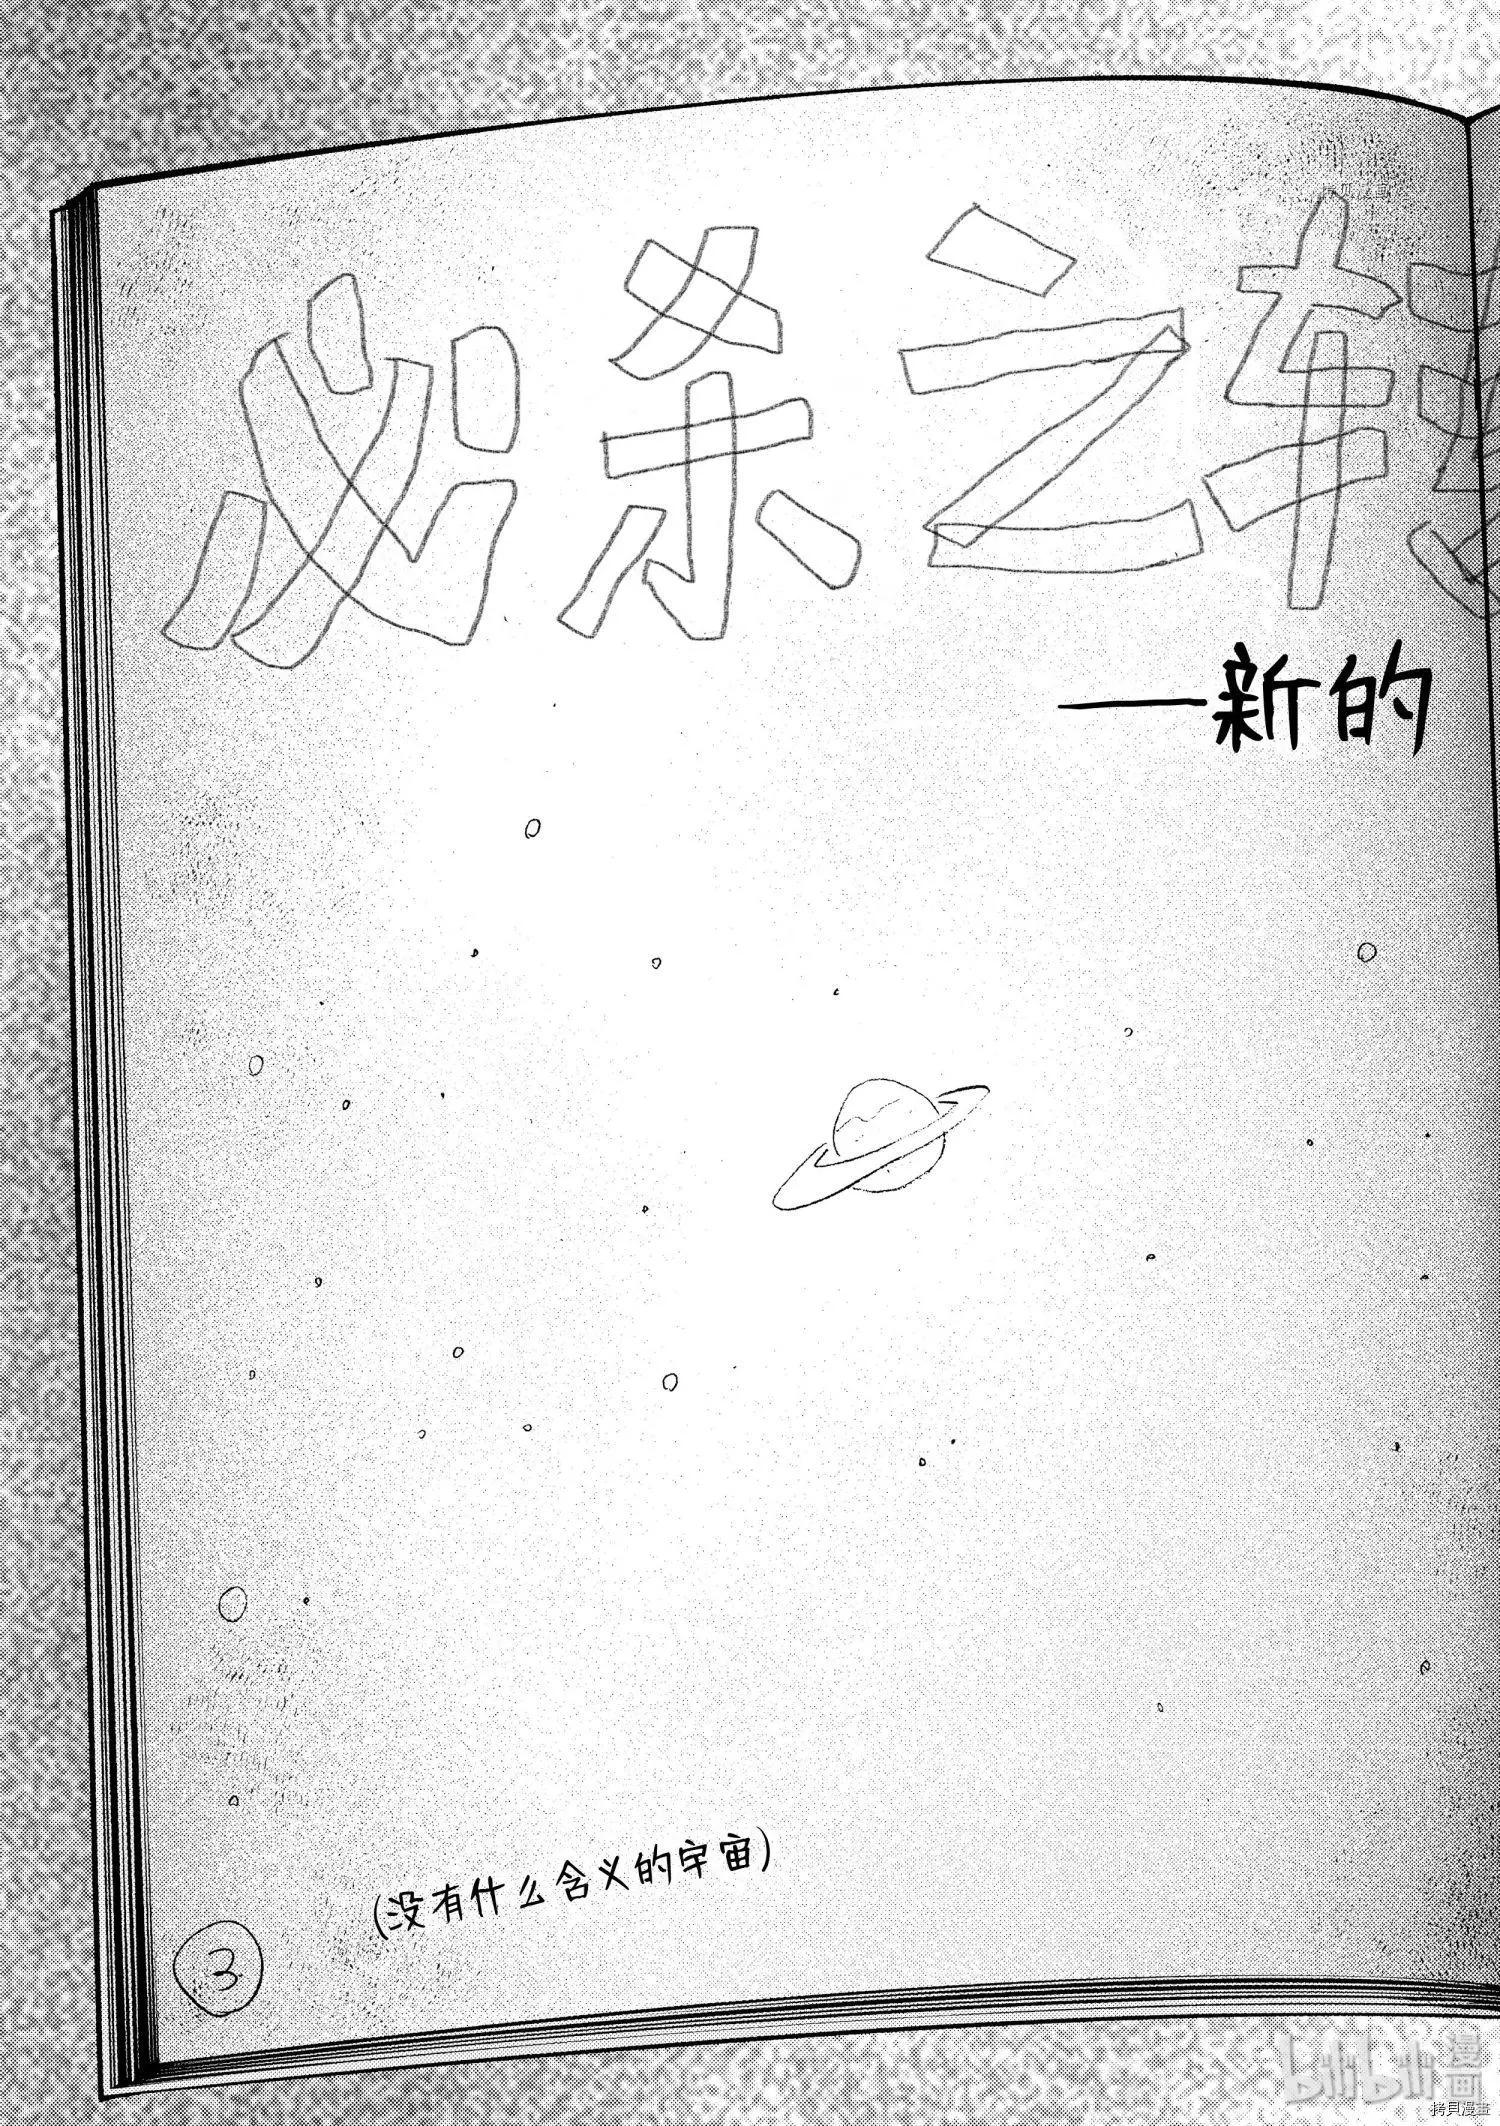 必杀之转
—新的
(没有什么含义的宇宙)
3
bilibili 漫画
拷貝漫畫